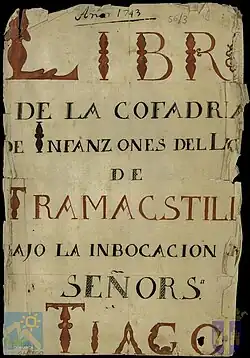 Año 1743
56/3
LIBR
DE LA COFADRIA
DE INFANZONES DEL LU
DE
TRAMACSTILL
BAJO LA INBOCACION
SEÑORS.
TIAGO